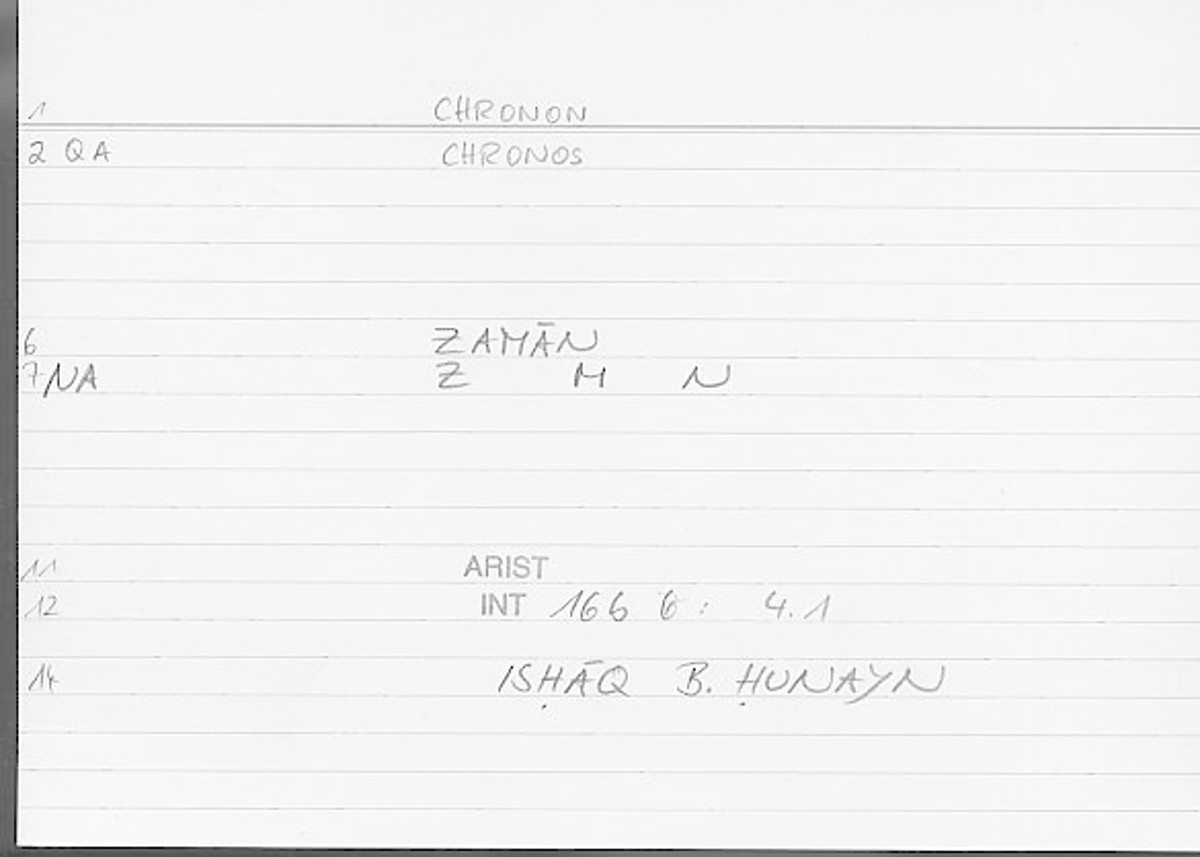 1 CHRONON
2 QA CHRONOS
6 ZAMĀN
7 NA Z M N
11 ARIST
12 INT 166 6: 4.1
14 ISḤĀQ B. ḤUNAYN